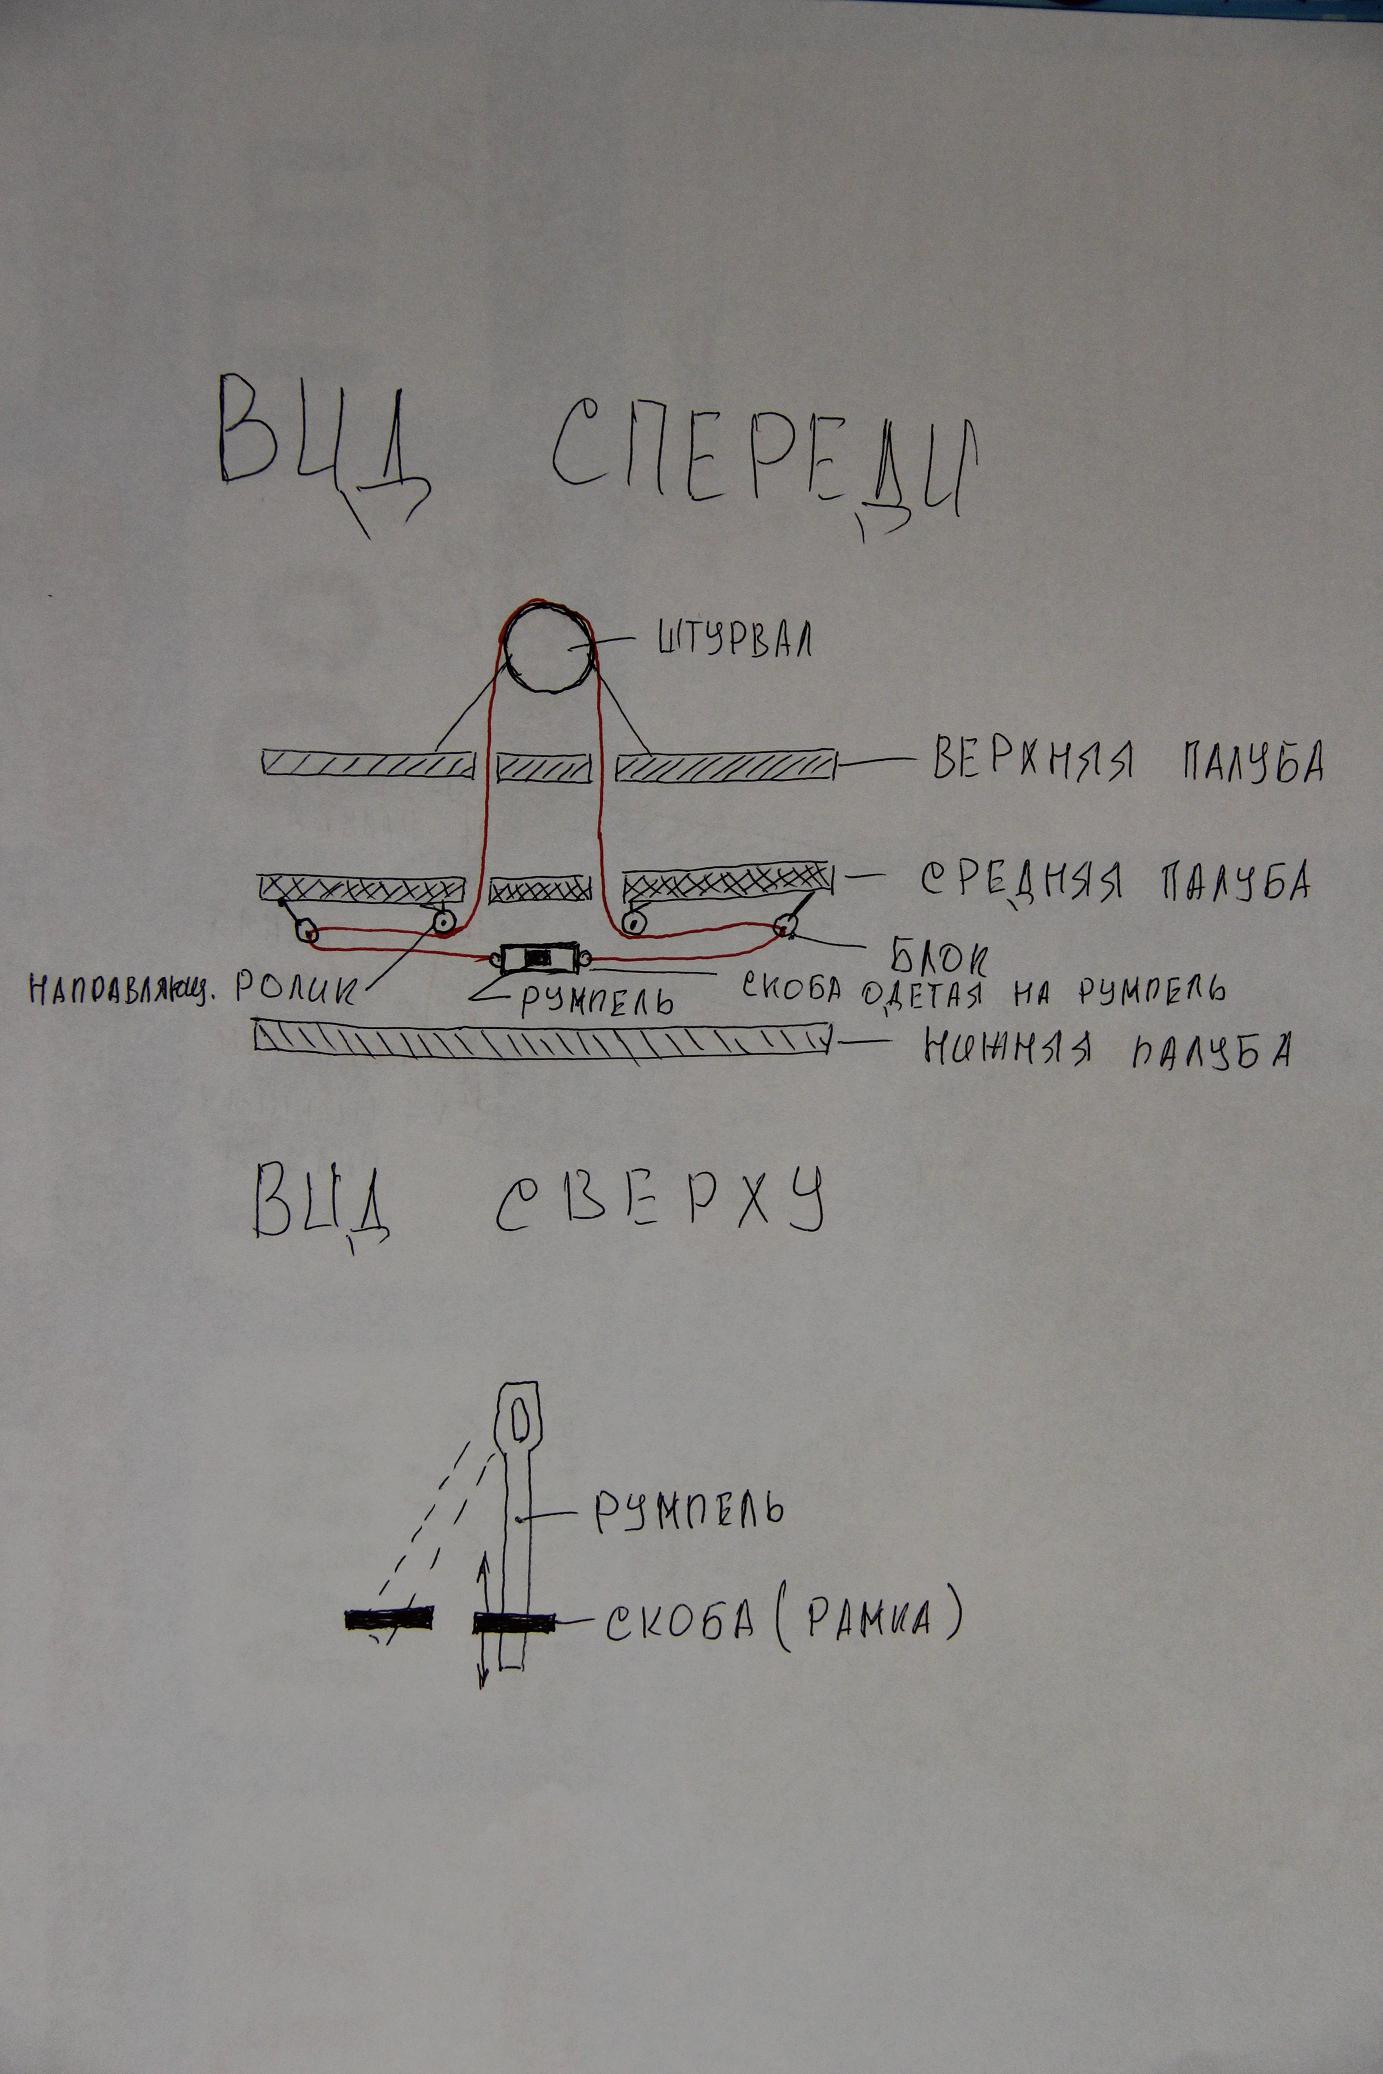 ВИД СПЕРЕДИ
ШТУРВАЛ
ВЕРХНЯЯ ПАЛУБА
СРЕДНЯЯ ПАЛУБА
БЛОК
НАПРАВЛЯЮЩ. РОЛИК
РУМПЕЛЬ
СКОБА ОДЕТАЯ НА РУМПЕЛЬ
НИЖНЯЯ ПАЛУБА
ВИД СВЕРХУ
РУМПЕЛЬ
СКОБА (РАМКА)